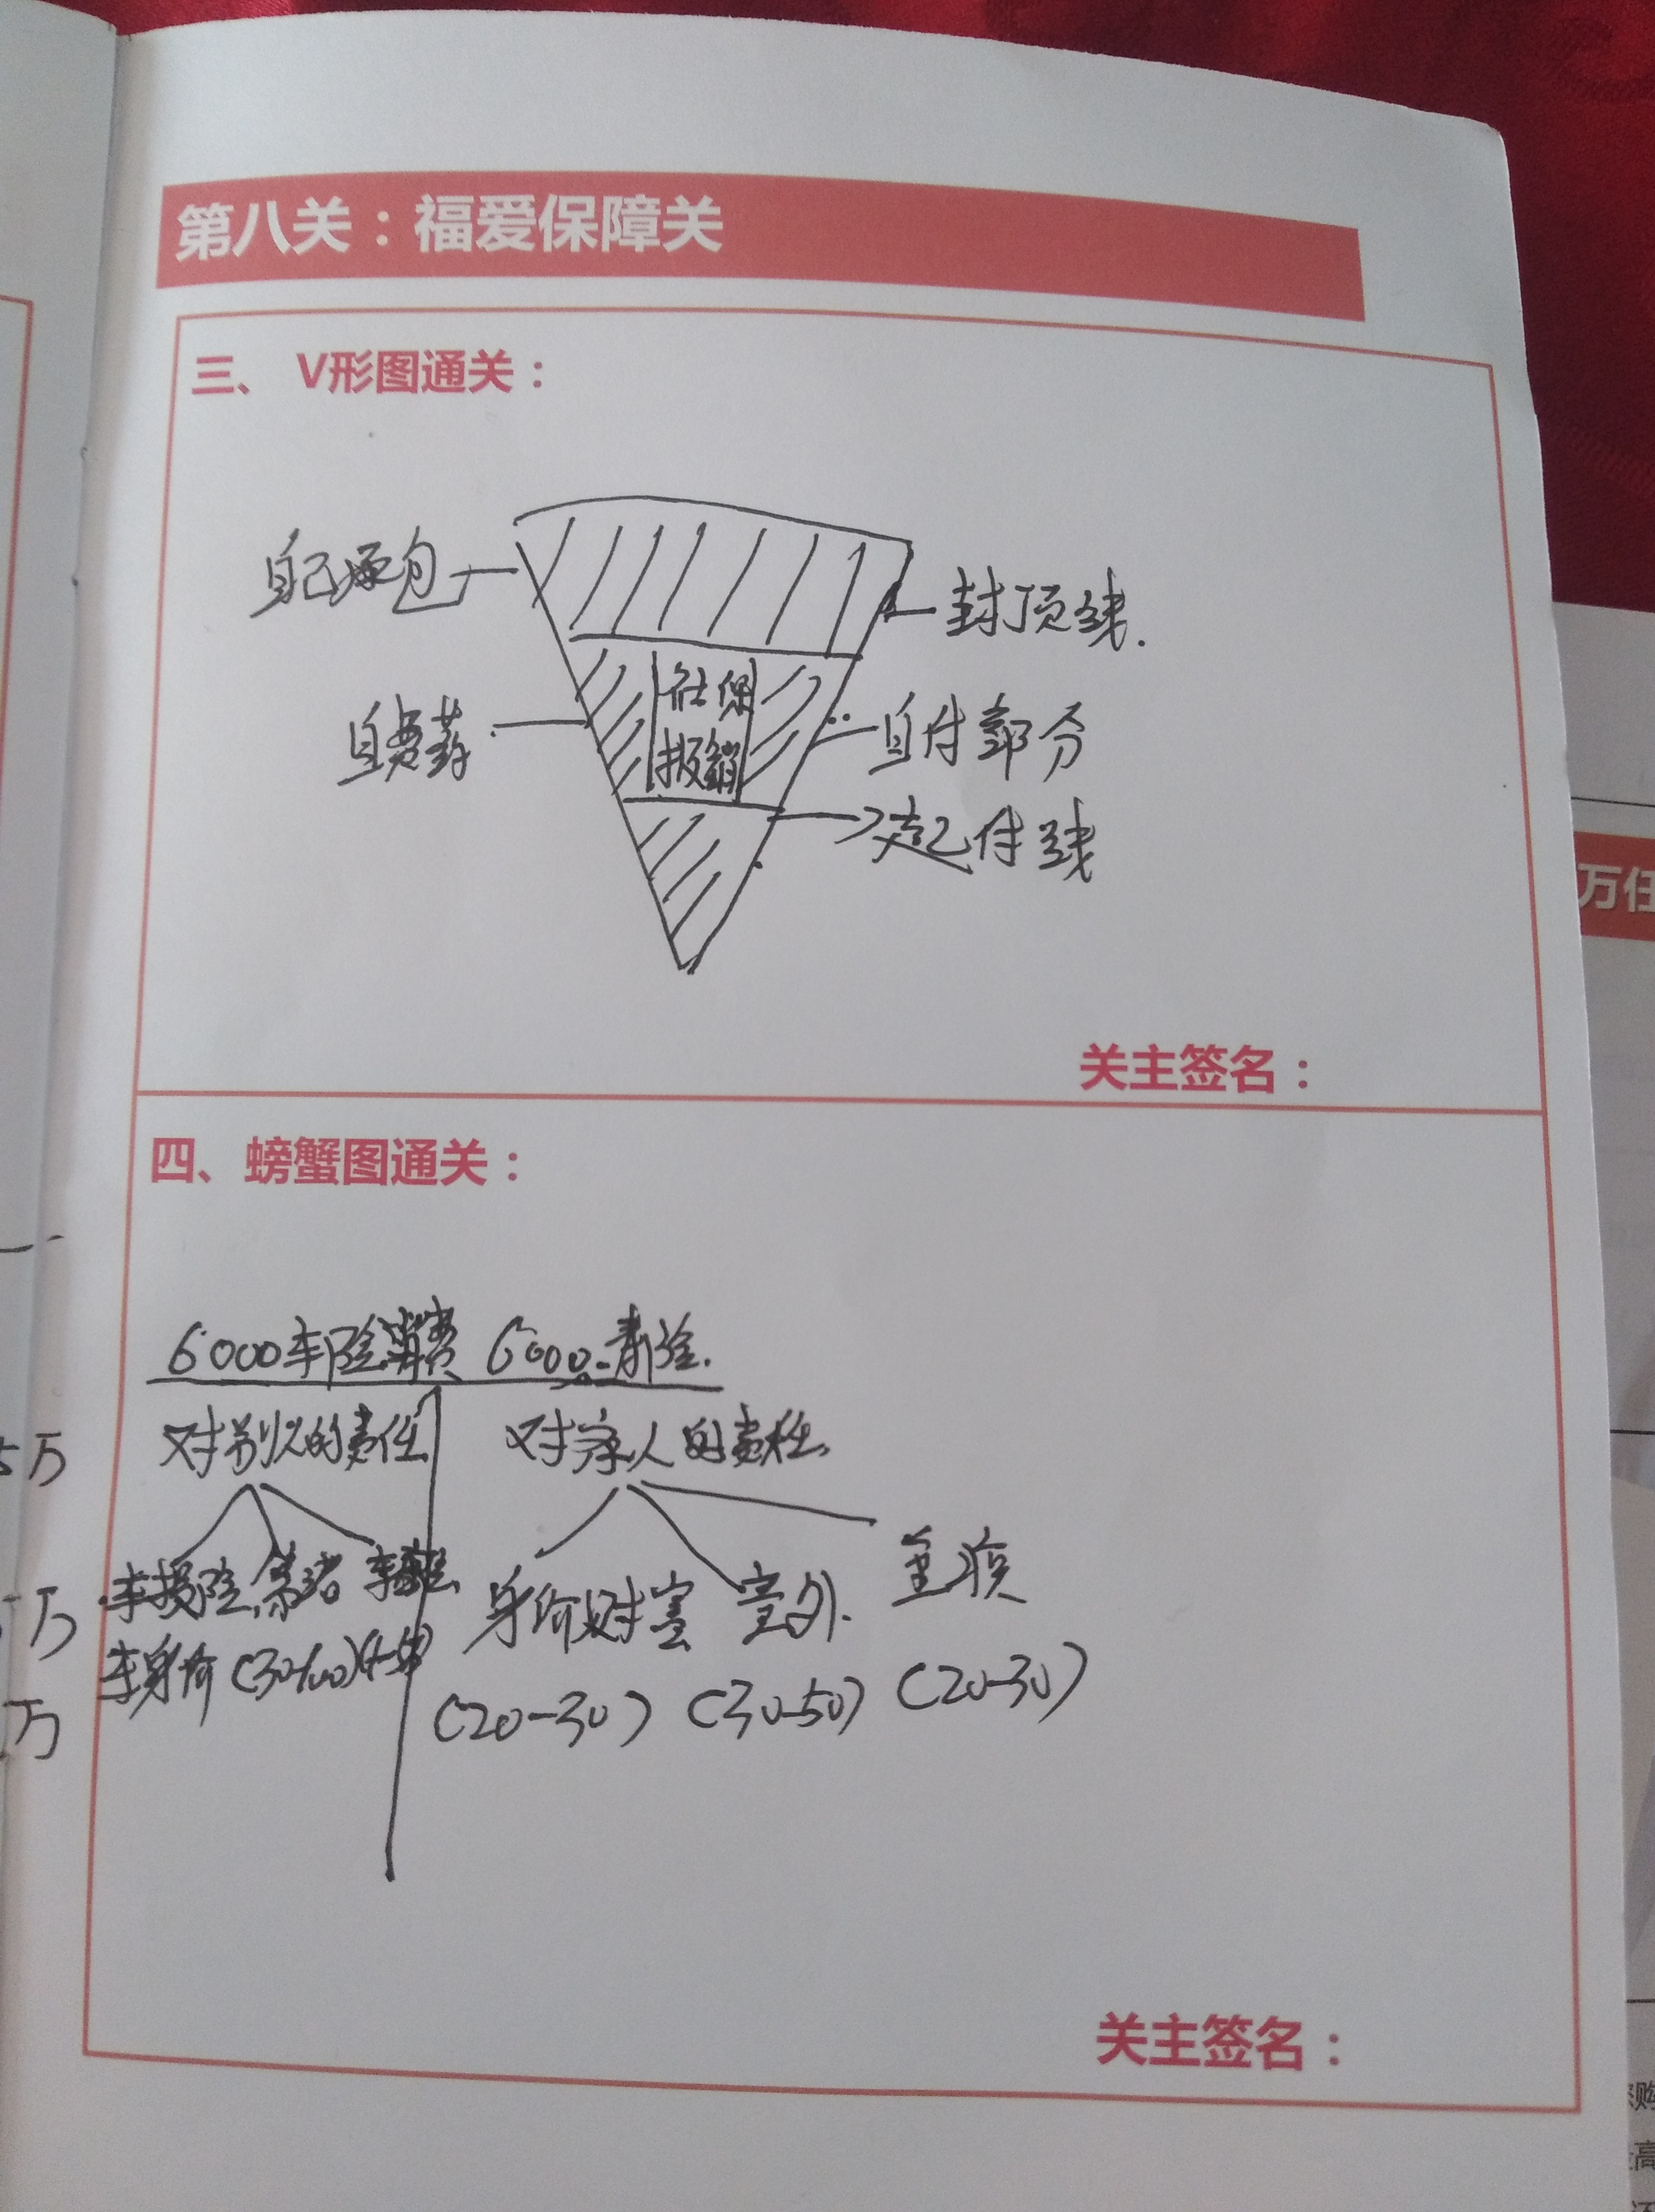 第八关：福爱保障关
三、 V形图通关：
自己承包
封顶线.
社保
报销
自费药
自付部分
起付线
关主签名：
四、螃蟹图通关：
6000车险消费 6000寿险.
对别人的责任
对家人的责任
车损险
车身价
身价
意外.
重疾
(20-30) (30-50) (20-30)
关主签名：
5万
万
万
万任